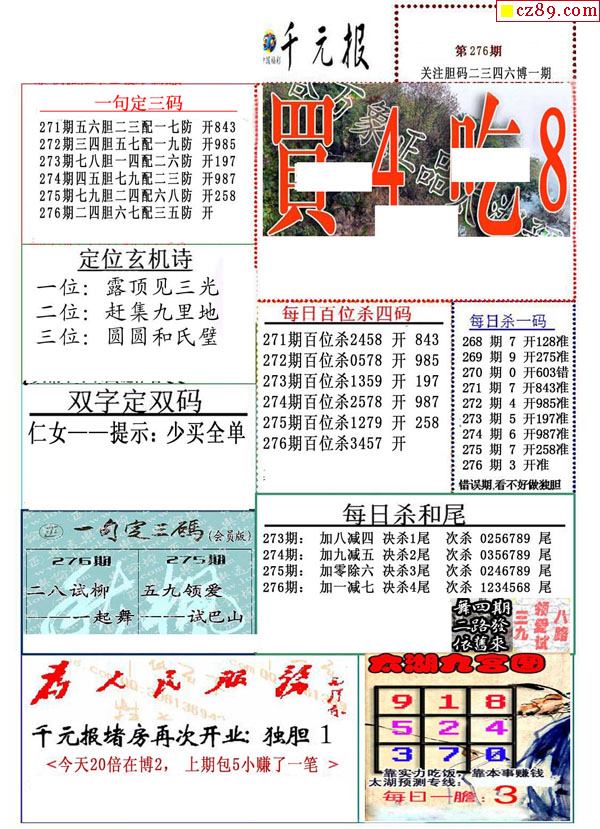 cz89.com
千元报
第276期
关注胆码二三四六博一期
一句定三码
271期五六胆二三配一七防 开843
272期三四胆五七配一九防 开985
273期七八胆一四配二六防 开197
274期四五胆七九配二三防 开987
275期七九胆二四配六八防 开258
276期二四胆六七配三五防 开
買4吃8
定位玄机诗
一位: 露顶见三光
二位: 赶集九里地
三位: 圆圆和氏璧
每日百位杀四码
271期百位杀2458 开 843
272期百位杀0578 开 985
273期百位杀1359 开 197
274期百位杀2578 开 987
275期百位杀1279 开 258
276期百位杀3457 开
每日杀一码
268 期 7 开128准
269 期 9 开275准
270 期 0 开603错
271 期 7 开843准
272 期 4 开985准
273 期 5 开197准
274 期 6 开987准
275 期 7 开258准
276 期 3 开准
错误期,看不好做独胆
双字定双码
仁女——提示: 少买全单
一句定三碼(会员版)
276期 275期
二八试柳 五九领爱
——一起舞 ——试巴山
每日杀和尾
273期: 加八减四 决杀1尾 次杀 0256789 尾
274期: 加九减五 决杀2尾 次杀 0356789 尾
275期: 加零除六 决杀3尾 次杀 0246789 尾
276期: 加一减七 决杀4尾 次杀 1234568 尾
舞四期
二路發
依舊來
三九
领爱试
八路
为人民服务
千元报堵房再次开业: 独胆 1
<今天20倍在博2, 上期包5小赚了一笔 >
太湖九宫图
9 1 8
5 2 4
3 7 0
靠实力吃饭, 靠本事赚钱
太湖预测专线:
每日一胆: 3